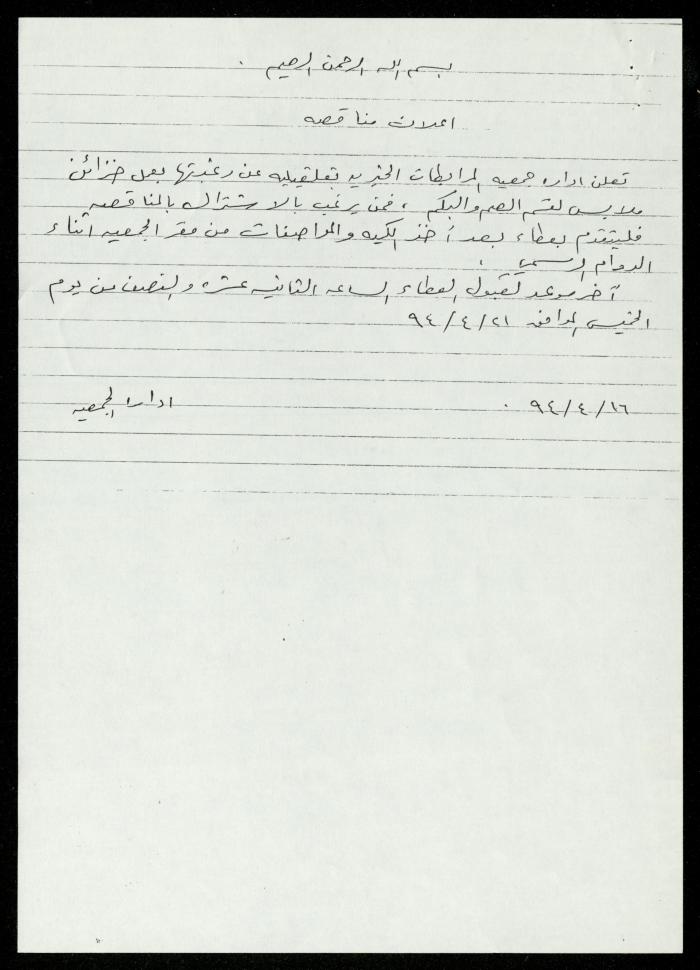 بسم الله الرحمن الرحيم .
اعلان مناقصه
تعلن اداره جمعيه المرابطات الخيريه بقلقيليه عن رغبتها بعمل خزائن
ملابس لقسم الصم والبكم ، فمن يرغب بالاشتراك بالمناقصه
فليتقدم بعطاء بعد أخذ الكميه والمواصفات من مقر الجمعيه اثناء
الدوام الرسمي .
آخر موعد لقبول العطاء الساعه الثانيه عشره والنصف من يوم
الخميس الموافق ٢١ / ٤ / ٩٤
١٦ / ٤ / ٩٤ . اداره الجمعيه